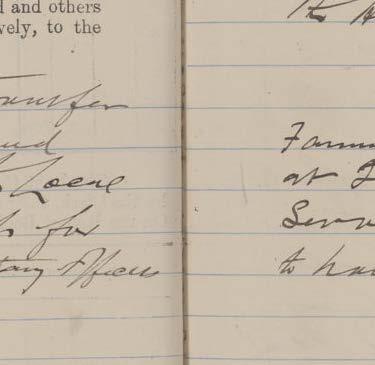 d and others
vely, to the
ansfer
and
Local
s for
tary Officers
the
Farm
at
Serv
to hav